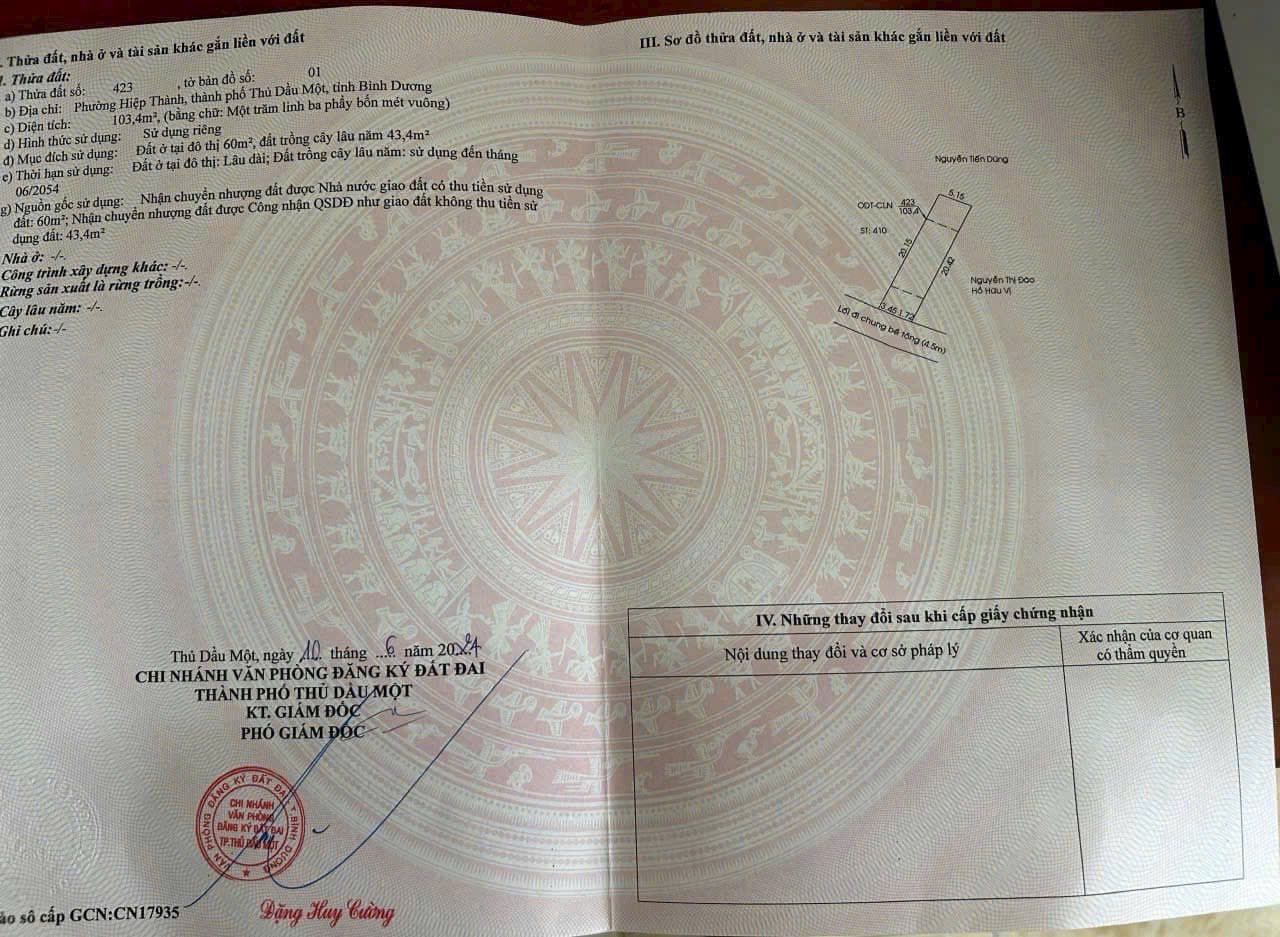 . Thửa đất, nhà ở và tài sản khác gắn liền với đất
1. Thửa đất:
a) Thửa đất số: 423 , tờ bản đồ số: 01
b) Địa chỉ: Phường Hiệp Thành, thành phố Thủ Dầu Một, tỉnh Bình Dương
c) Diện tích: 103,4m², (bằng chữ: Một trăm linh ba phẩy bốn mét vuông)
d) Hình thức sử dụng: Sử dụng riêng
đ) Mục đích sử dụng: Đất ở tại đô thị 60m², đất trồng cây lâu năm 43,4m²
e) Thời hạn sử dụng: Đất ở tại đô thị: Lâu dài; Đất trồng cây lâu năm: sử dụng đến tháng
06/2054
g) Nguồn gốc sử dụng: Nhận chuyển nhượng đất được Nhà nước giao đất có thu tiền sử dụng
đất: 60m²; Nhận chuyển nhượng đất được Công nhận QSDĐ như giao đất không thu tiền sử
dụng đất: 43,4m²
Nhà ở: -/-.
Công trình xây dựng khác: -/-.
Rừng sản xuất là rừng trồng:-/-.
Cây lâu năm: -/-.
Ghi chú:-/-
Thủ Dầu Một, ngày 10 tháng ...6 năm 2024
CHI NHÁNH VĂN PHÒNG ĐĂNG KÝ ĐẤT ĐAI
THÀNH PHỐ THỦ DẦU MỘT
KT. GIÁM ĐỐC
PHÓ GIÁM ĐỐC
VĂN PHÒNG ĐĂNG KÝ ĐẤT ĐAI T.BÌNH DƯƠNG
CHI NHÁNH
VĂN PHÒNG
ĐĂNG KÝ ĐẤT ĐAI
TP.THỦ DẦU MỘT
Đặng Huy Cường
ào sổ cấp GCN:CN17935
III. Sơ đồ thửa đất, nhà ở và tài sản khác gắn liền với đất
B
Nguyễn Tiến Dũng
5.15
ODT-CLN 423
103,4
ST: 410
20.15
20.42
Nguyễn Thị Đào
Hồ Hữu Vị
3.45 1.72
Lối đi chung bê tông (4.5m)
IV. Những thay đổi sau khi cấp giấy chứng nhận
Nội dung thay đổi và cơ sở pháp lý
Xác nhận của cơ quan
có thẩm quyền